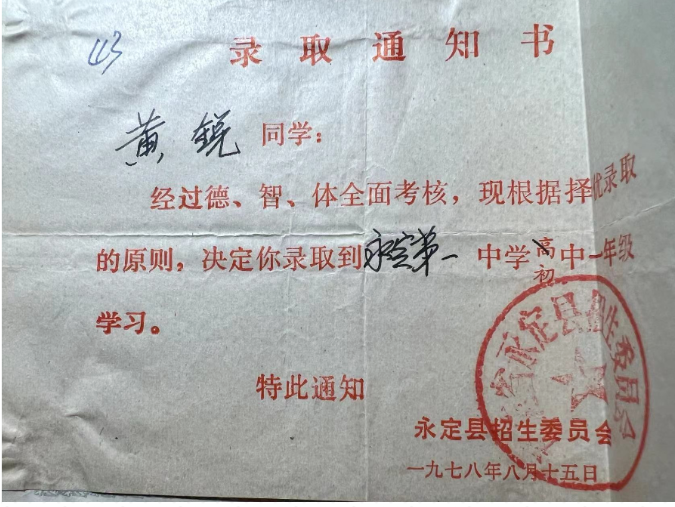 43
录取通知书
黄锐同学：
经过德、智、体全面考核，现根据择优录取
的原则，决定你录取到永定第一中学高初中一年级
学习。
特此通知
永定县招生委员会
一九七八年八月十五日
永定县招生委员会